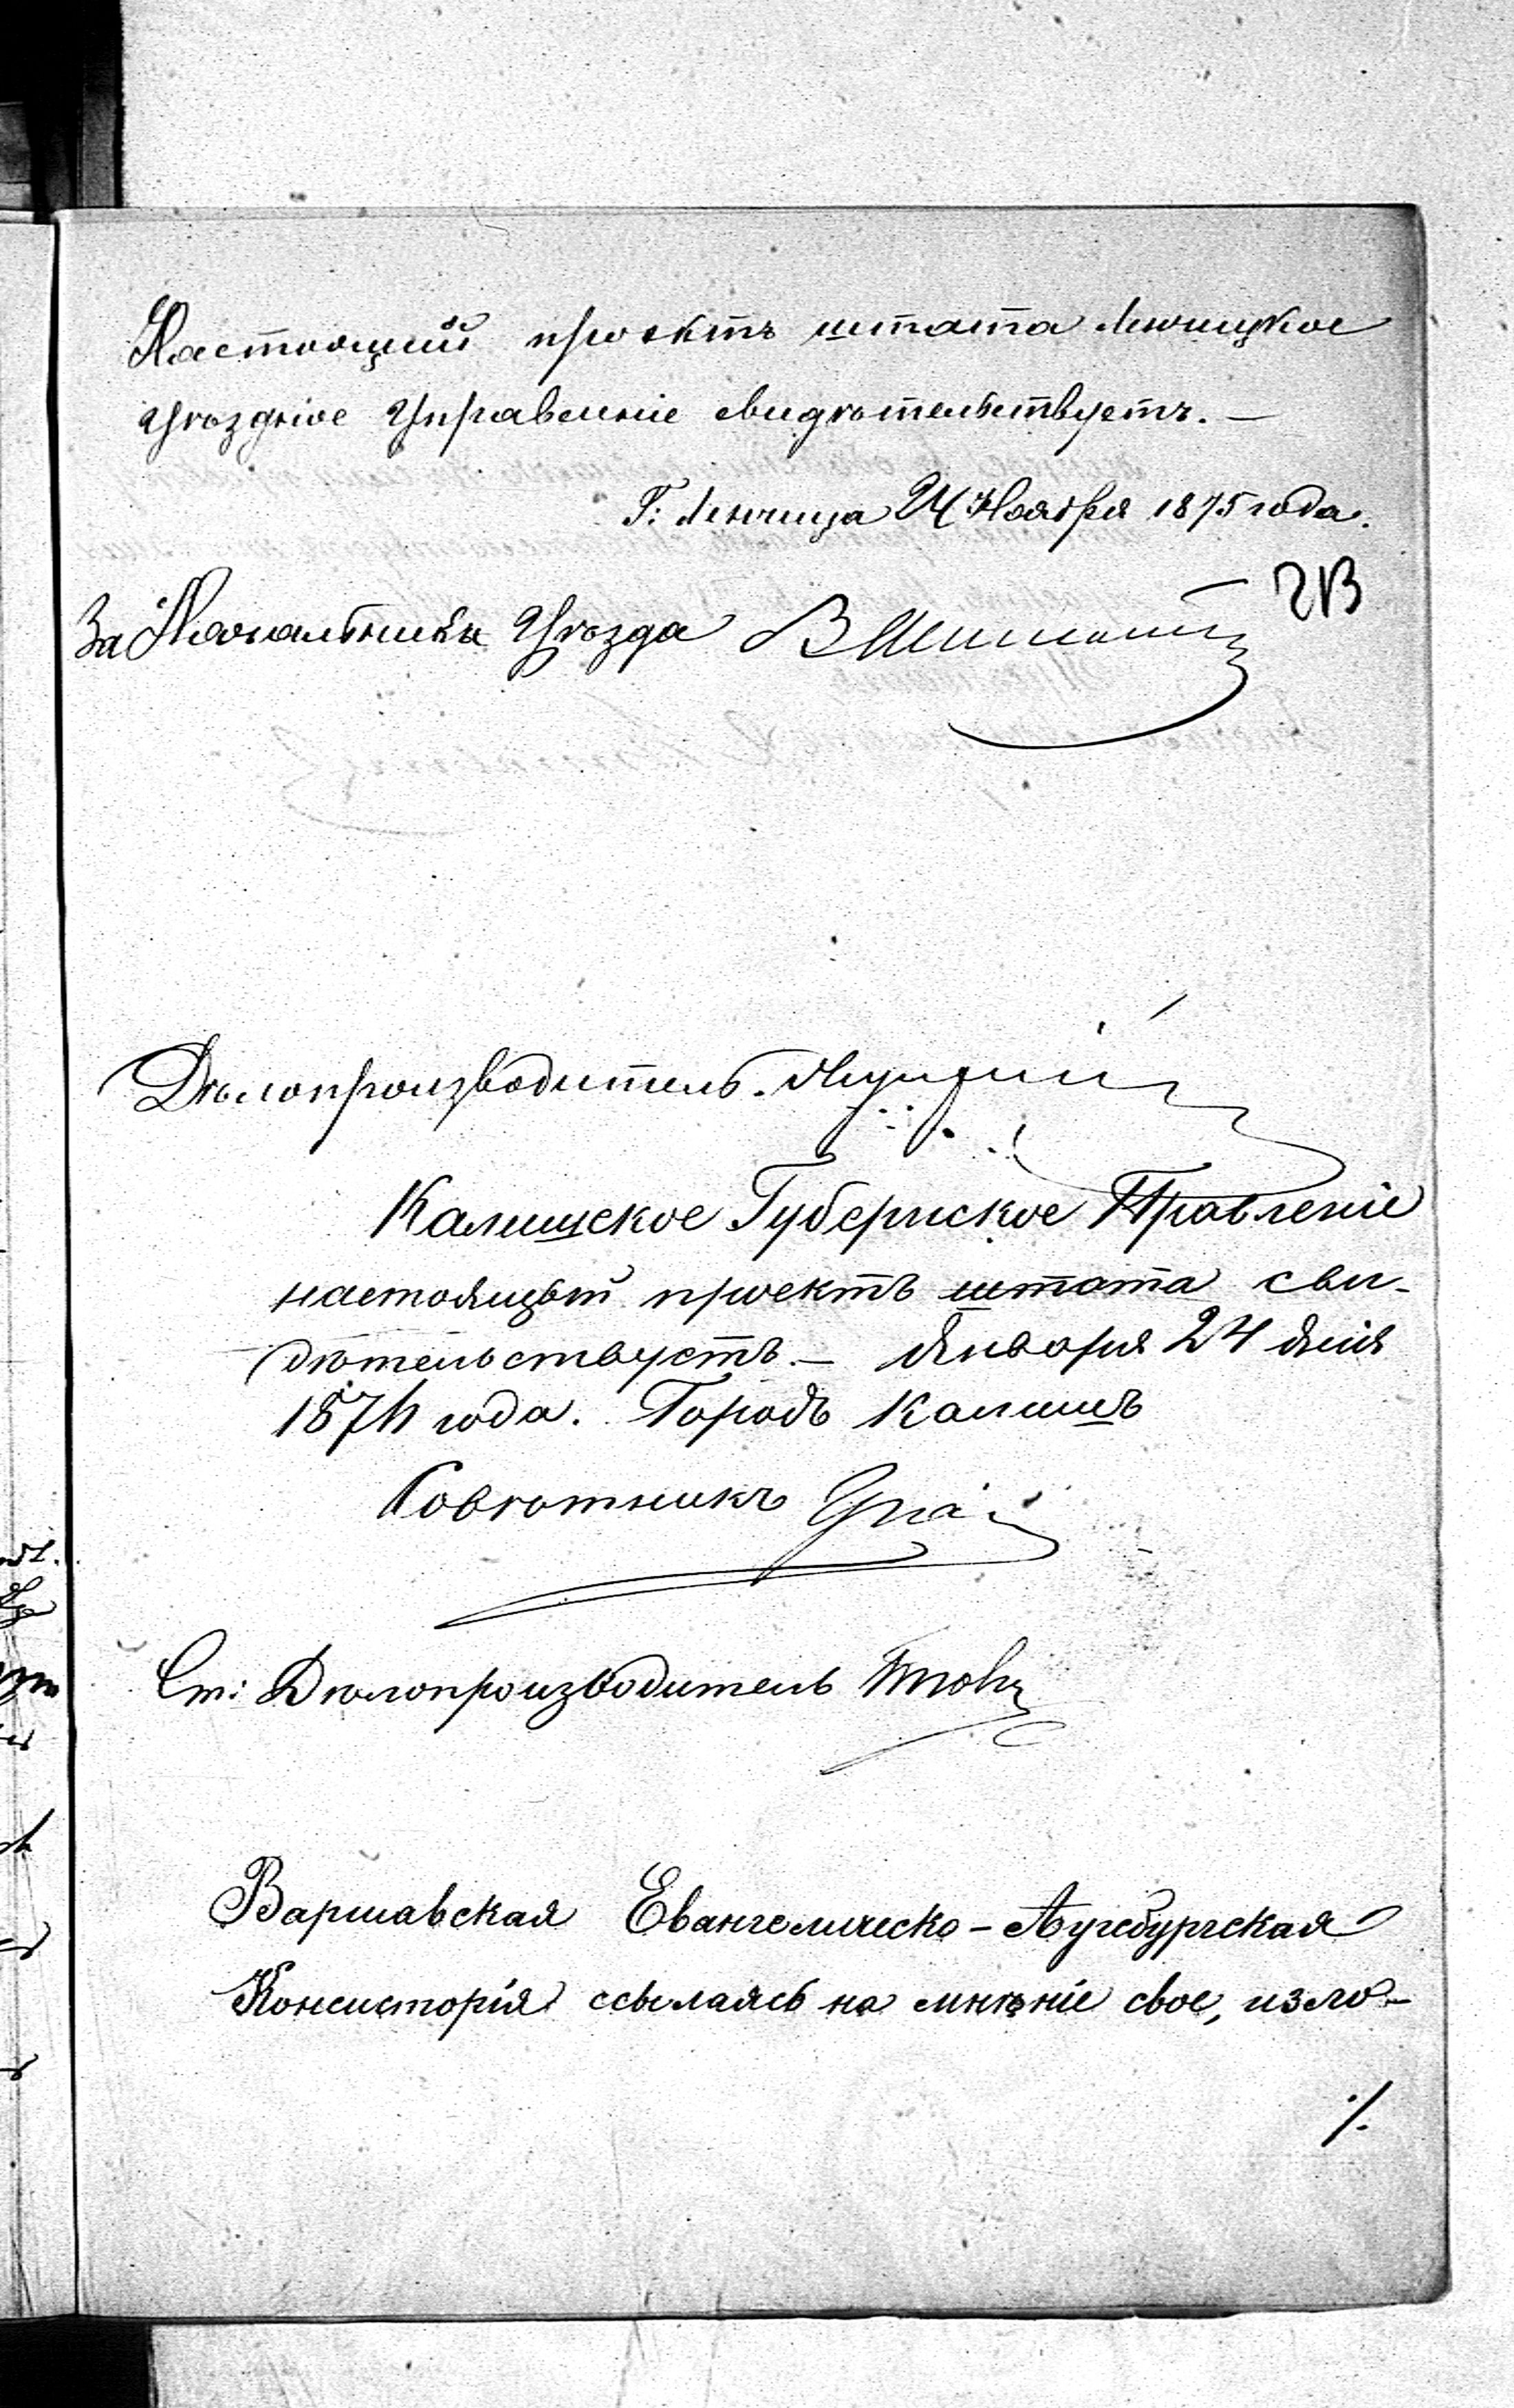 Настоящій проектъ штата Ленчицкое
Уѣздное Управленіе свидѣтельствуетъ. —
Г: Ленчица 24 Ноября 1875 года.
За Начальника Уѣзда В
Дѣлопроизводитель.
Калишское Губернское Правленіе
настоящій проектъ штата сви-
дѣтельствуетъ. — Января 24 дня
187 года. Городъ Калишъ
Совѣтникъ
Ст: Дѣлопроизводитель
Варшавская Евангелическо-Аугсбургская
Консисторія ссылаясь на мнѣніе свое, изло-
./.